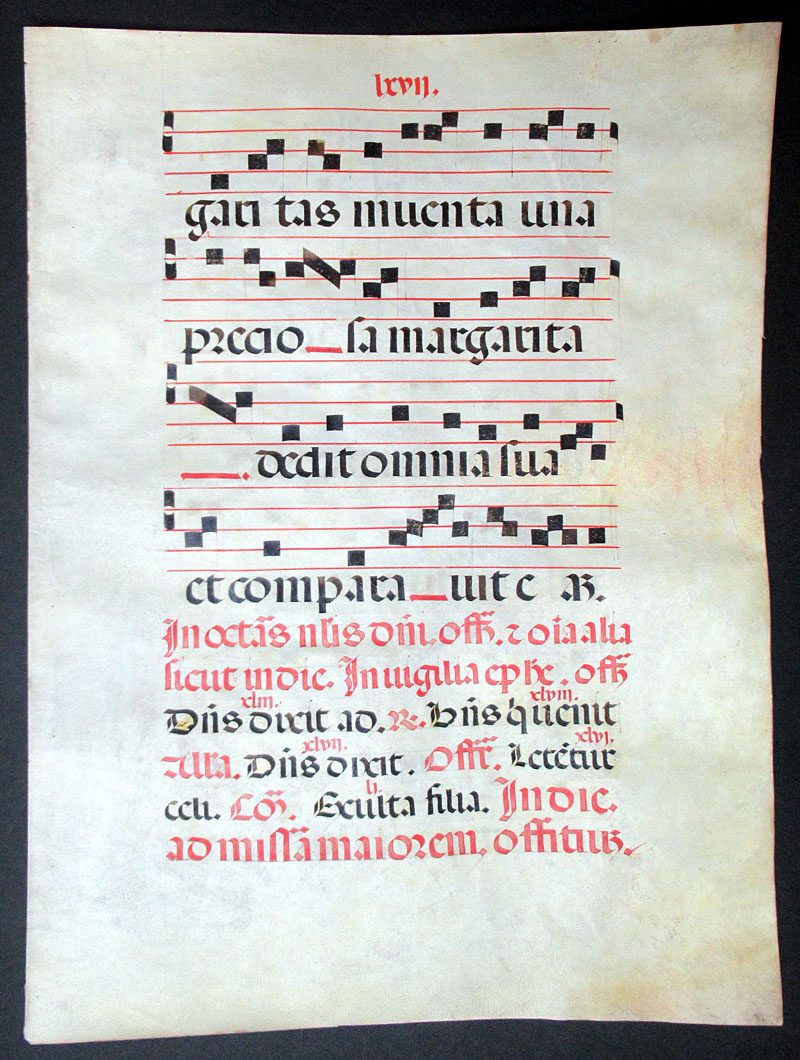 lxvij.
gari tas inuenta una
precio sa margarita
dedit omnia sua
et compara uit e
In octas nlis dni. offm. ⁊ oia alia
sicut in die. In uigilia eph'e. offm
xliij. xlviij.
Dns dixit ad. R. Bns q uenit
xlvij. xlvj.
Alla. Dns dixit. Offr. Letetur
li.
celi. Com. Exulta filia. In die.
ad missa maiorem. offitiu.